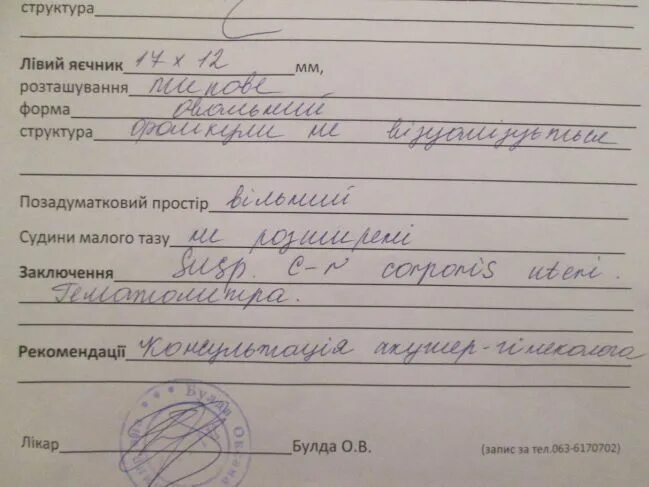 структура
Лівий яєчник 17 х 12 мм,
розташування типове
форма овальний
структура фолікули не візуалізується
Позадуматковий простір вільний
Судини малого тазу не розширені
Заключення Susp. C-r corporis uteri.
Гематометра.
Рекомендації Консультація акушер-гінеколога
Лікар Булда О.В. (запис за тел.063-6170702)
Булда Оксана